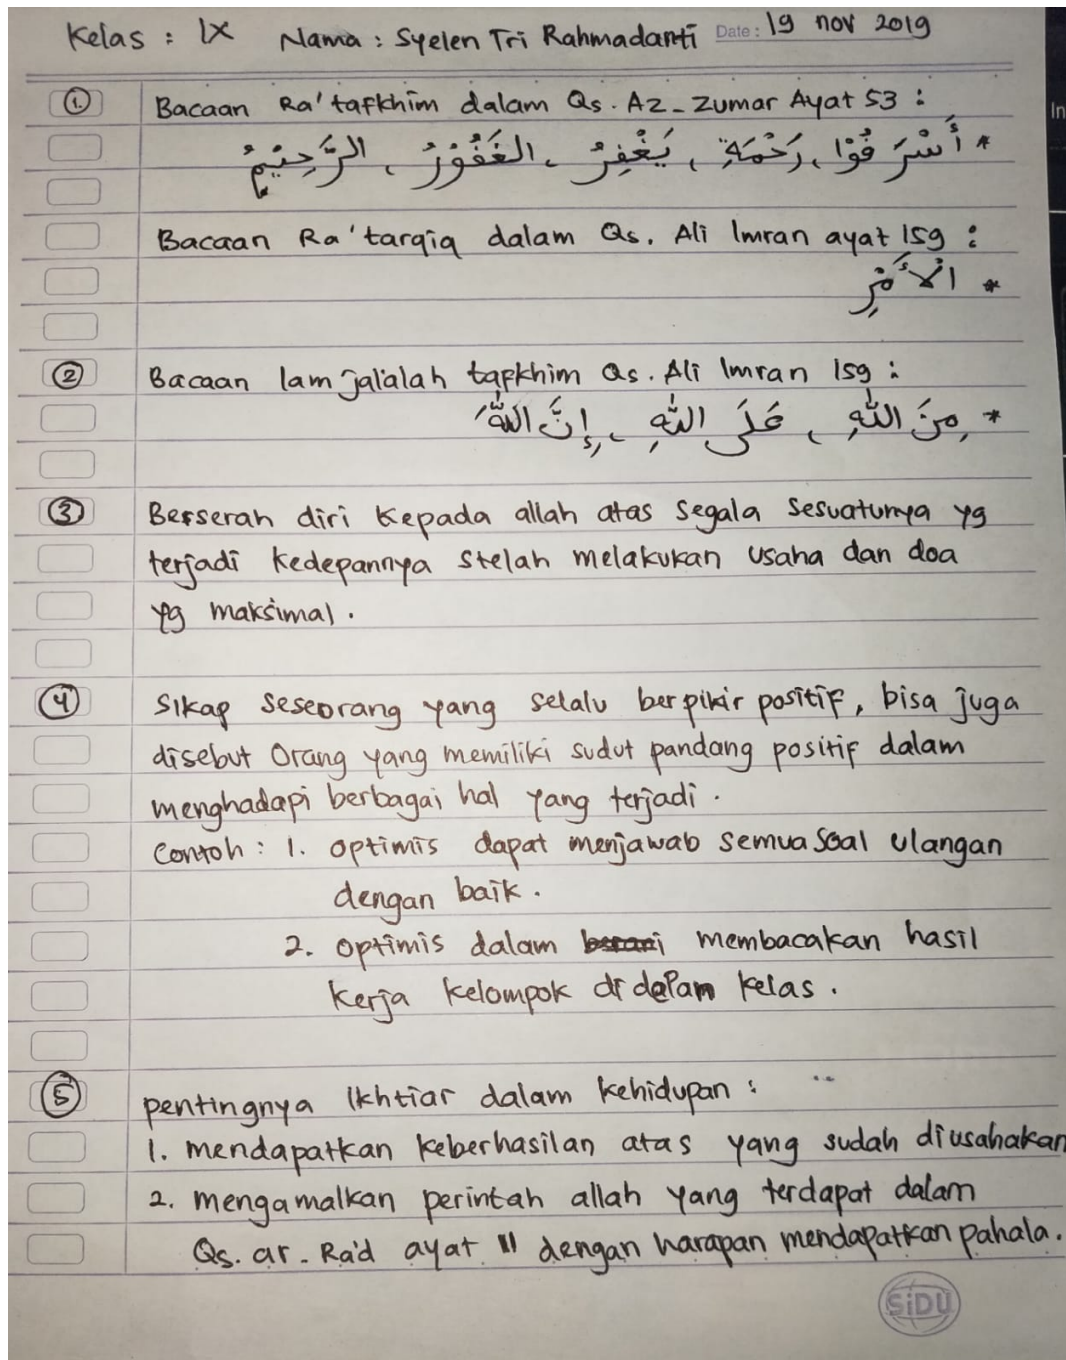 Kelas : IX Nama : Syelen Tri Rahmadanti Date : 19 nov 2019
① Bacaan Ra' tafkhim dalam Qs. Az-Zumar Ayat 53 :
* أَسْرَفُوْا، رَحْمَةِ، يَغْفِرُ، الغَفُوْرُ، الرَّحِيْمُ
Bacaan Ra' tarqiq dalam Qs. Ali Imran ayat 159 :
* الْأَمْرِ
② Bacaan lam jalalah tafkhim Qs. Ali Imran 159 :
* مِنَ اللّٰهِ، عَلَى اللّٰهِ، إِنَّ اللّٰهَ
③ Berserah diri kepada allah atas segala sesuatunya yg
terjadi kedepannya stelah melakukan usaha dan doa
yg maksimal.
④ Sikap seseorang yang selalu berpikir positif, bisa juga
disebut Orang yang memiliki sudut pandang positif dalam
menghadapi berbagai hal yang terjadi.
Contoh : 1. optimis dapat menjawab semua soal ulangan
dengan baik.
2. optimis dalam membacakan hasil
kerja kelompok di depan kelas.
⑤ pentingnya Ikhtiar dalam kehidupan :
1. mendapatkan keberhasilan atas yang sudah diusahakan
2. mengamalkan perintah allah yang terdapat dalam
Qs. ar-Ra'd ayat 11 dengan harapan mendapatkan pahala.
SiDU
In